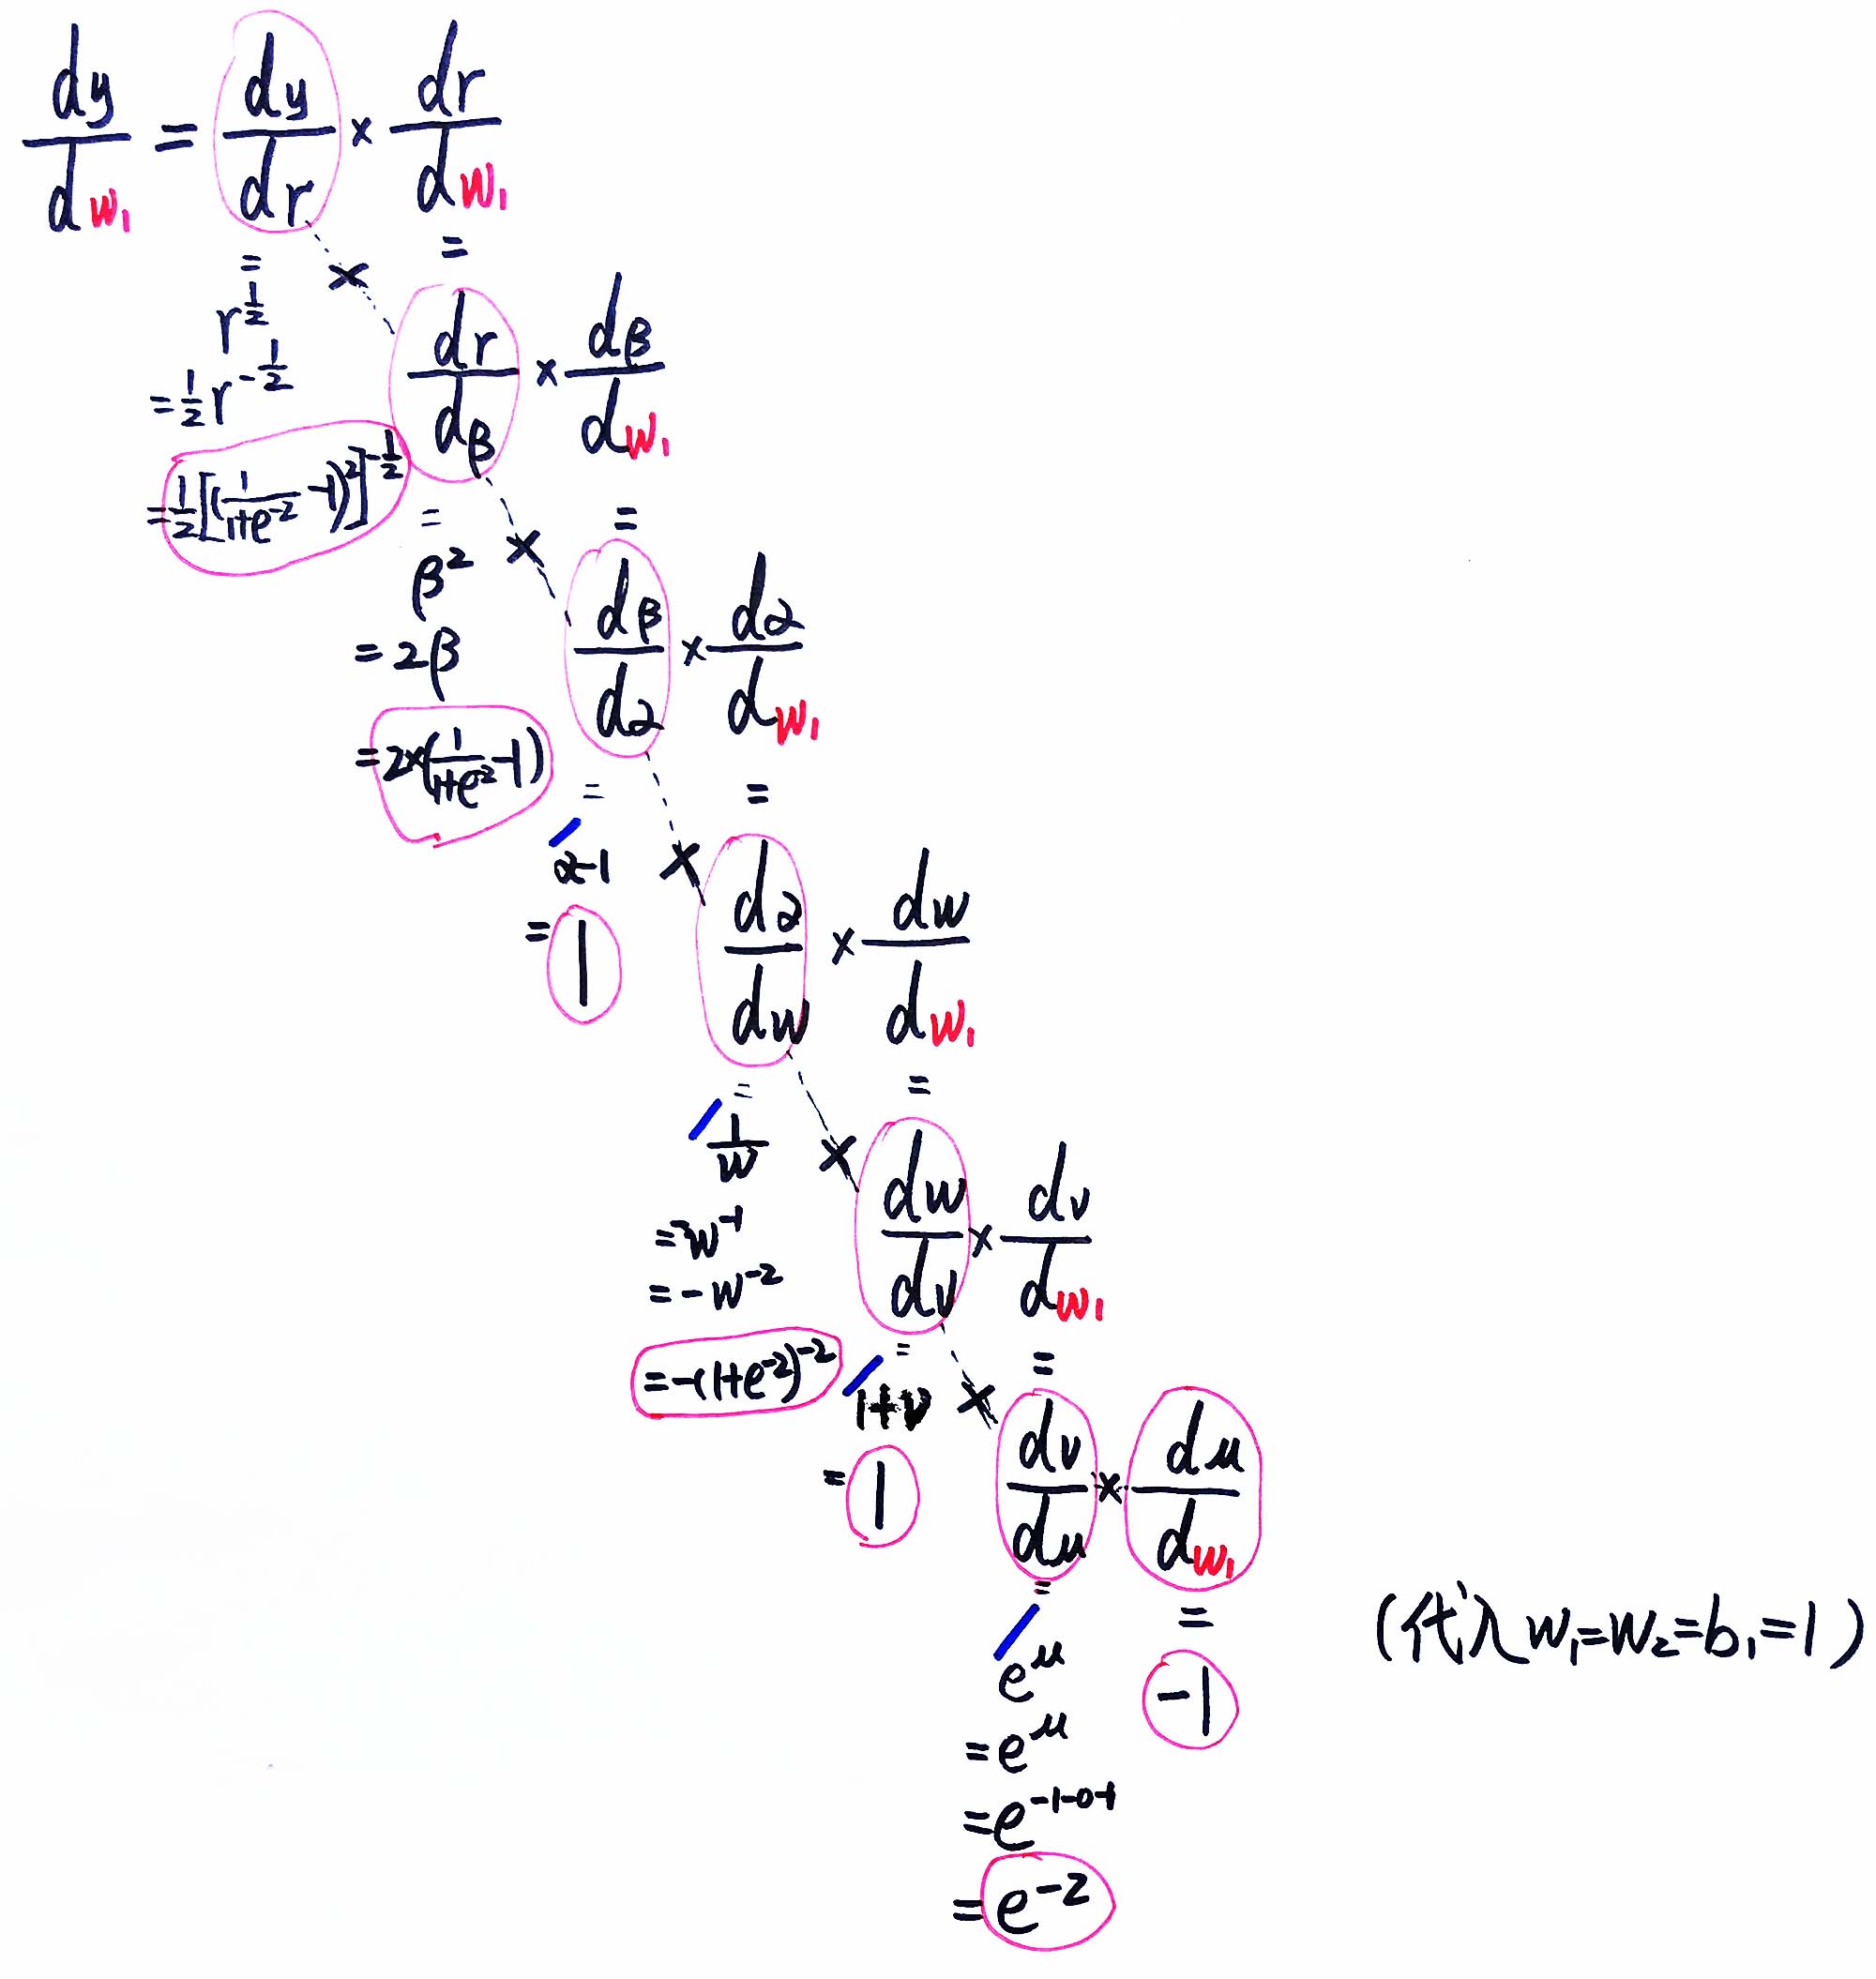 dy/dw₁ = dy/dr × dr/dw₁
= × =
r^½
= ½r^-½
= ½[(1/(1+e^-2) -1)²]^-½
dr/dβ × dβ/dw₁
= × =
β²
= 2β
= 2×(1/(1+e^-2) -1)
dβ/dα × dα/dw₁
= × =
α-1
= 1
dα/dw × dw/dw₁
= × =
1/w
= w^-1
= -w^-2
= -(1+e^-2)^-2
dw/dv × dv/dw₁
= × =
1+v
= 1
dv/du × du/dw₁
= =
e^u
= e^u
= e^-1-0-1
= e^-2
-1
(代入 w₁=w₂=b₁=1)